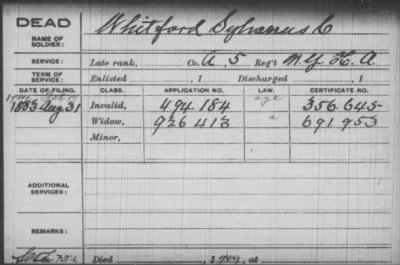 DEAD
NAME OF SOLDIER: Whitford Sylvanus C
SERVICE: Late rank, Co. A 5 Reg't N.Y. H. A
TERM OF SERVICE: Enlisted , 1 Discharged , 1
DATE OF FILING. CLASS. APPLICATION NO. LAW. CERTIFICATE NO.
1883 Aug 31 Invalid, 494 184 age 356.645
Widow, 926 413 a 691 953
Minor,
ADDITIONAL SERVICES:
REMARKS:
Died , 1909, at